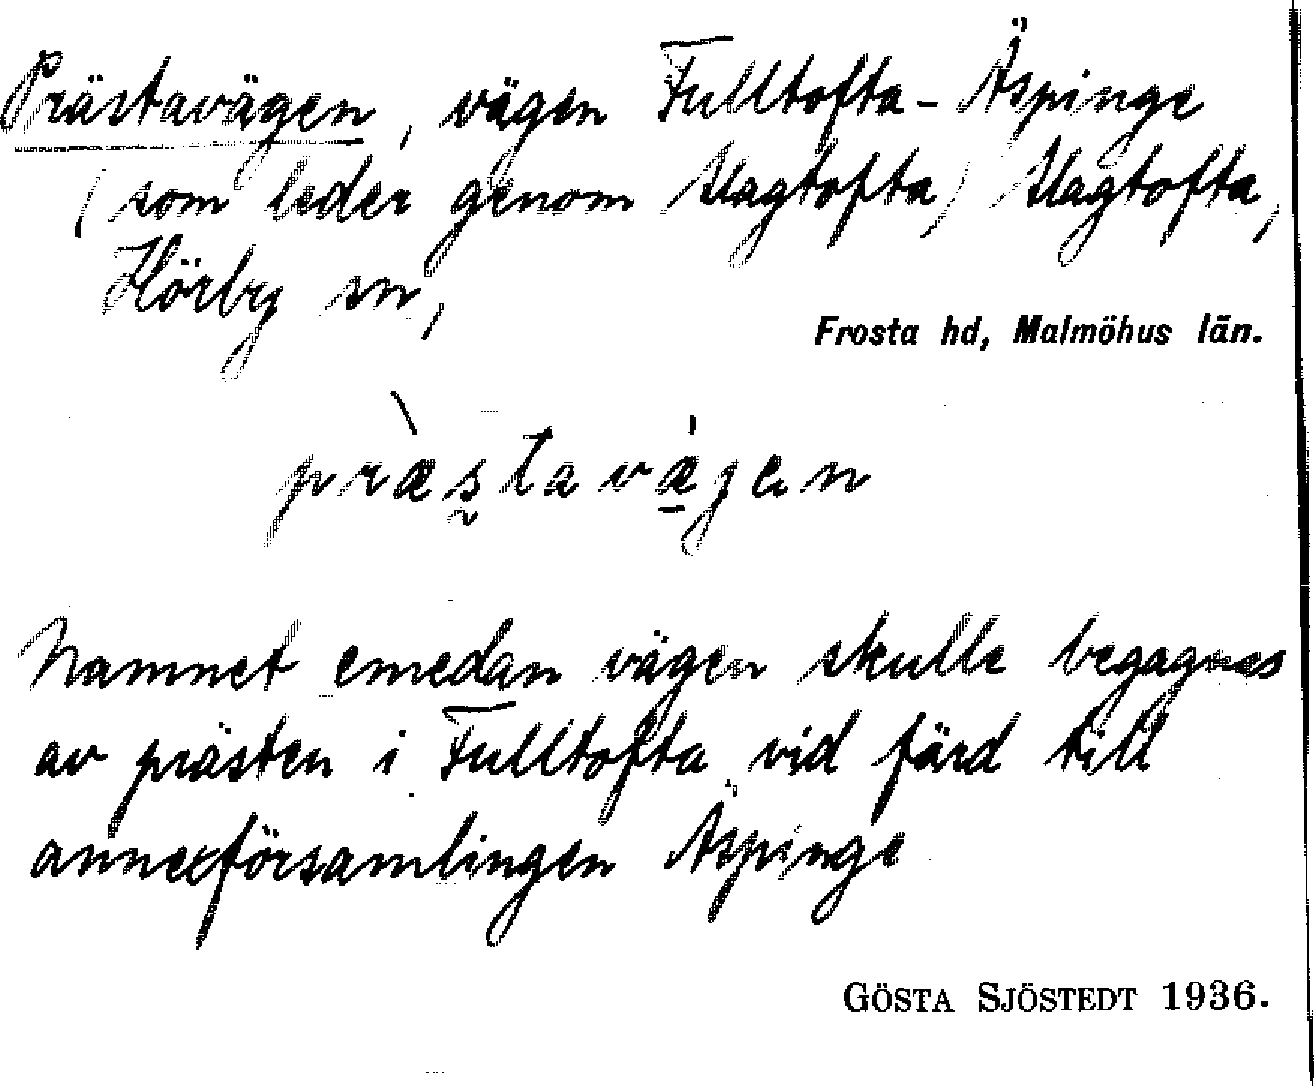 Prästavägen, vägen Fulltofta - Äspinge
(som leder genom Slagtofta) Slagtofta,
Hörby sn,
Frosta hd, Malmöhus län.
præstavægen
Namnet emedan vägen skulle begagnas
av prästen i Fulltofta vid färd till
annexförsamlingen Äspinge
GÖSTA SJÖSTEDT 1936.